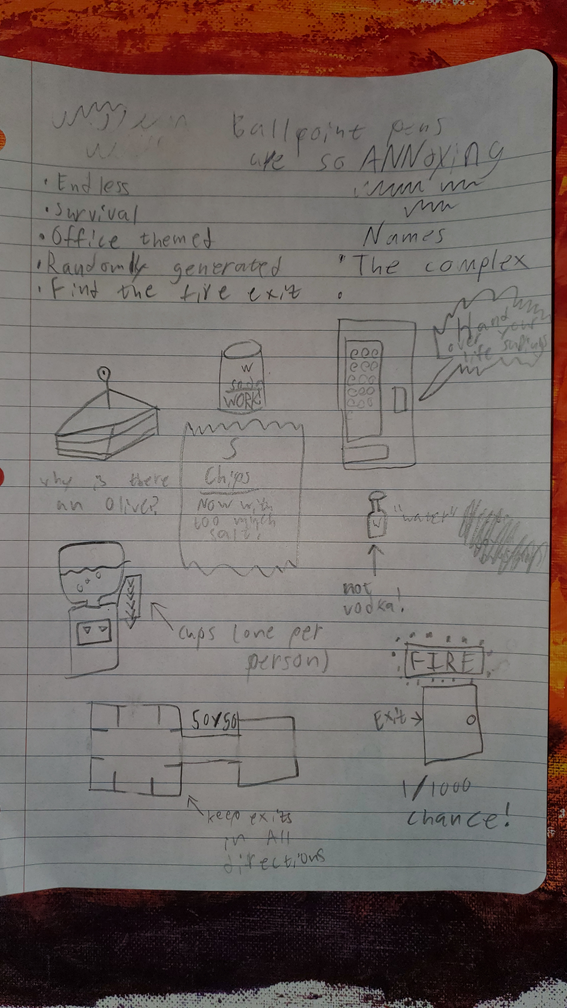 Ballpoint pens
are so ANNOYING
• Endless
• Survival
• Office themed
• Randomly generated
• Find the fire exit
Names
• The complex
•
Hand
over your
life savings
W
soda
WORK!
why is there
an olive?
S
Chips
NOW with
too much
salt!
W
"water"
not
vodka!
cups (one per
person)
FIRE
Exit→
1/1000
chance!
50x50
keep exits
in All
directions